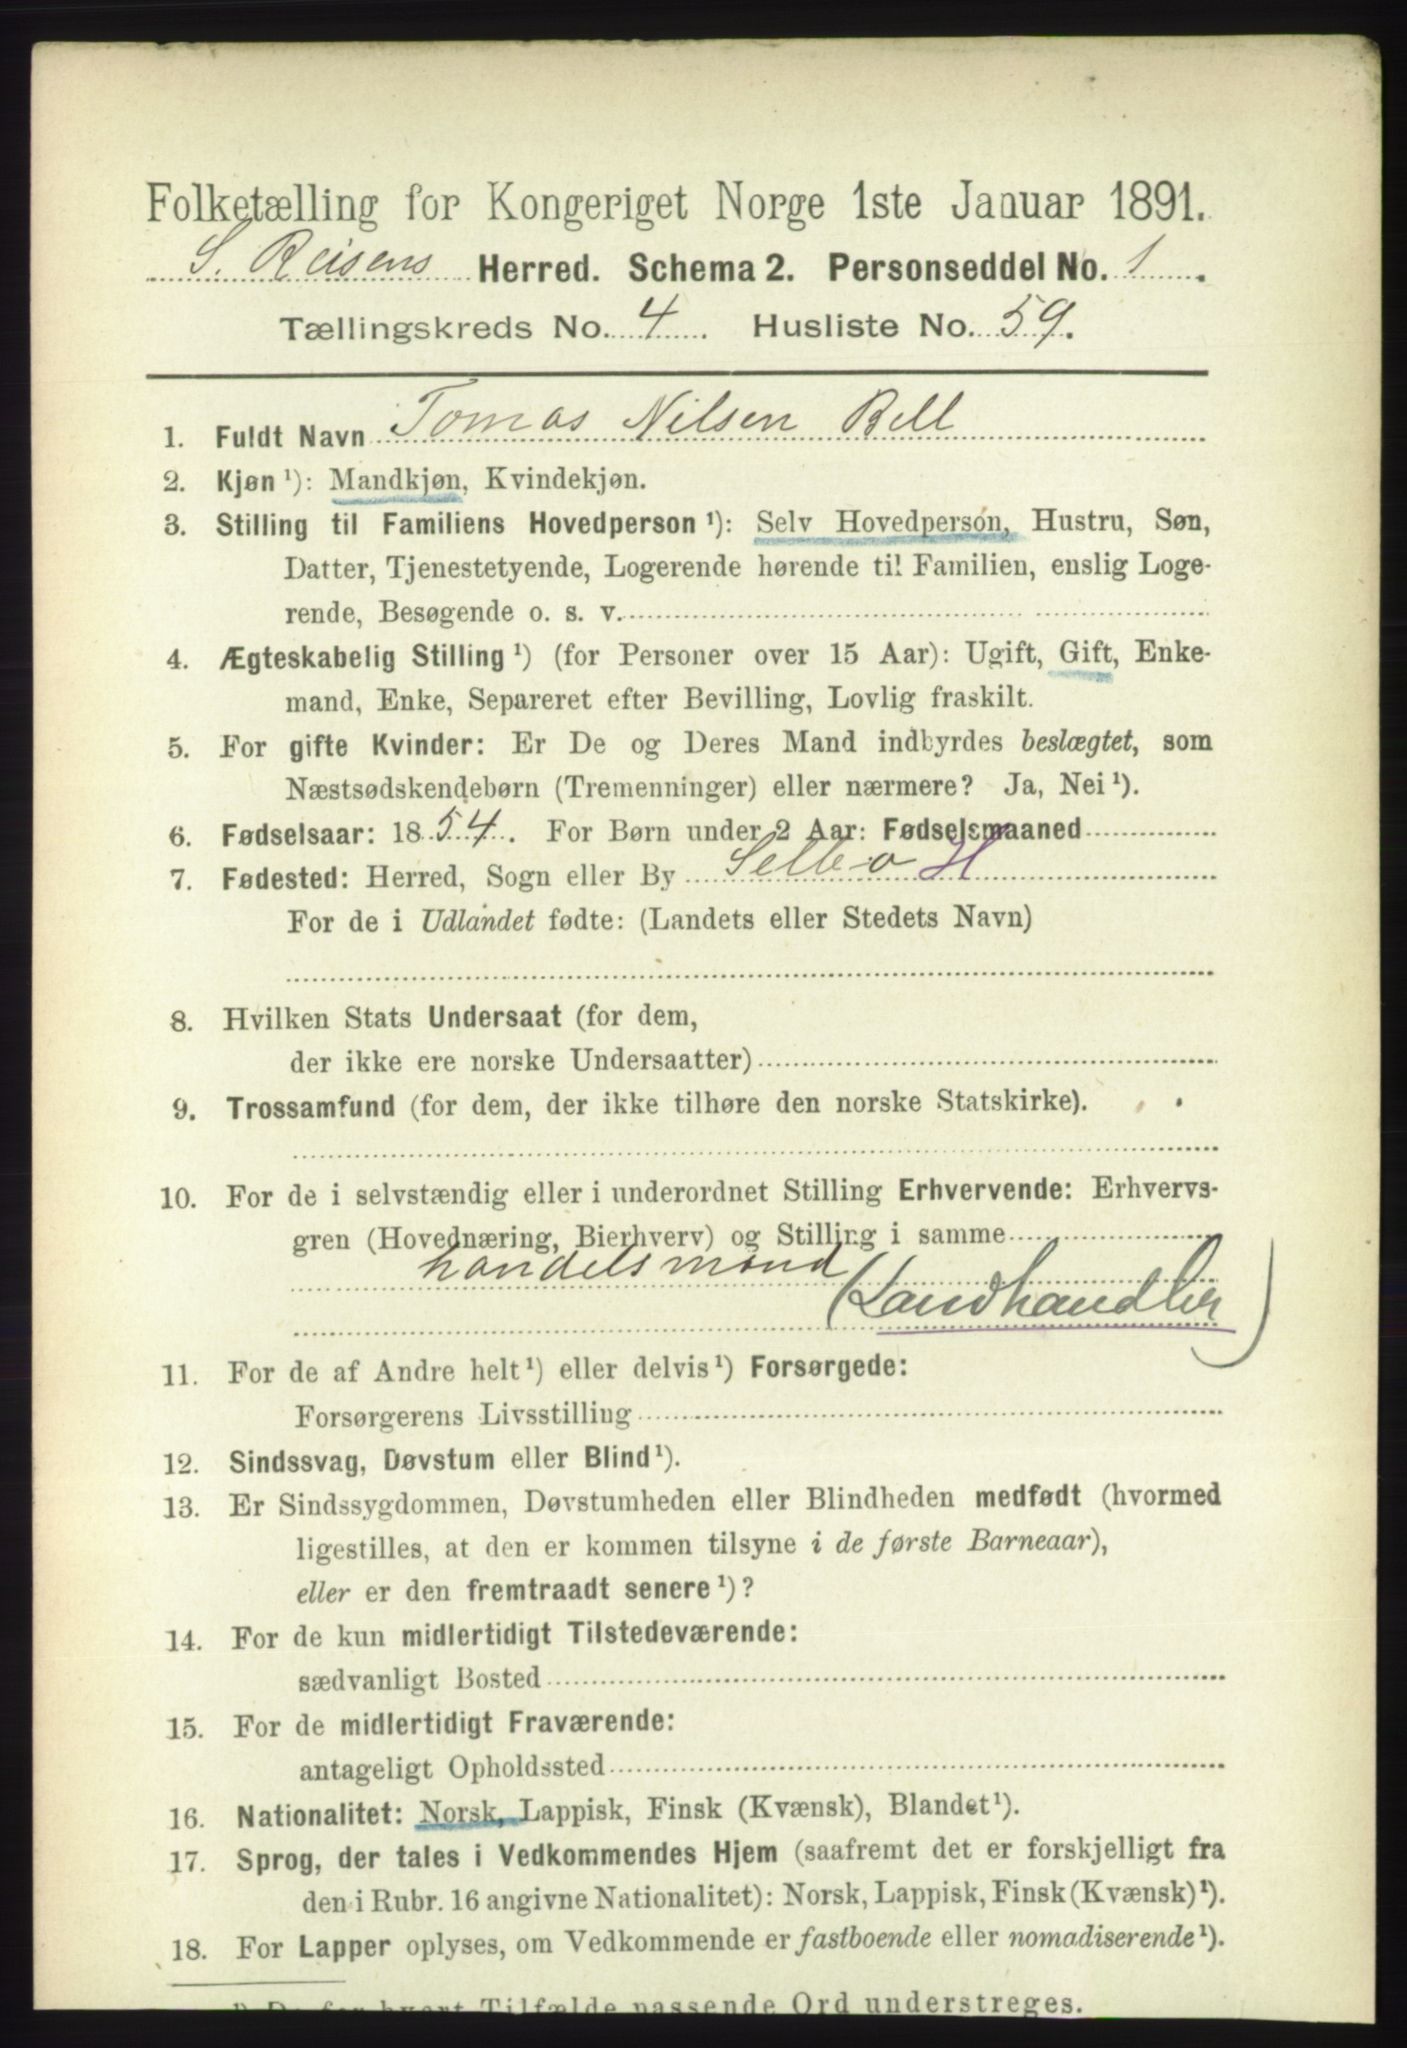 Folketælling for Kongeriget Norge 1ste Januar 1891.
S. Reisens Herred. Schema 2. Personseddel No. 1.
Tællingskreds No. 4. Husliste No. 59.
1. Fuldt Navn Tomas Nilsen Bell
2. Kjøn ¹): Mandkjøn, Kvindekjøn.
3. Stilling til Familiens Hovedperson ¹): Selv Hovedperson, Hustru, Søn,
Datter, Tjenestetyende, Logerende hørende til Familien, enslig Loge-
rende, Besøgende o. s. v.
4. Ægteskabelig Stilling ¹) (for Personer over 15 Aar): Ugift, Gift, Enke-
mand, Enke, Separeret efter Bevilling, Lovlig fraskilt.
5. For gifte Kvinder: Er De og Deres Mand indbyrdes beslægtet, som
Næstsødskendebørn (Tremenninger) eller nærmere? Ja, Nei ¹).
6. Fødselsaar: 1854. For Børn under 2 Aar: Fødselsmaaned
7. Fødested: Herred, Sogn eller By Selbo H
For de i Udlandet fødte: (Landets eller Stedets Navn)
8. Hvilken Stats Undersaat (for dem,
der ikke ere norske Undersaatter)
9. Trossamfund (for dem, der ikke tilhøre den norske Statskirke).
10. For de i selvstændig eller i underordnet Stilling Erhvervende: Erhvervs-
gren (Hovednæring, Bierhverv) og Stilling i samme
handelsmand
(Landhandler)
11. For de af Andre helt ¹) eller delvis ¹) Forsørgede:
Forsørgerens Livsstilling
12. Sindssvag, Døvstum eller Blind ¹).
13. Er Sindssygdommen, Døvstumheden eller Blindheden medfødt (hvormed
ligestilles, at den er kommen tilsyne i de første Barneaar),
eller er den fremtraadt senere ¹)?
14. For de kun midlertidigt Tilstedeværende:
sædvanligt Bosted
15. For de midlertidigt Fraværende:
antageligt Opholdssted
16. Nationalitet: Norsk, Lappisk, Finsk (Kvænsk), Blandet ¹).
17. Sprog, der tales i Vedkommendes Hjem (saafremt det er forskjelligt fra
den i Rubr. 16 angivne Nationalitet): Norsk, Lappisk, Finsk (Kvænsk) ¹).
18. For Lapper oplyses, om Vedkommende er fastboende eller nomadiserende ¹).
¹) De for hvert Tilfælde passende Ord understreges.